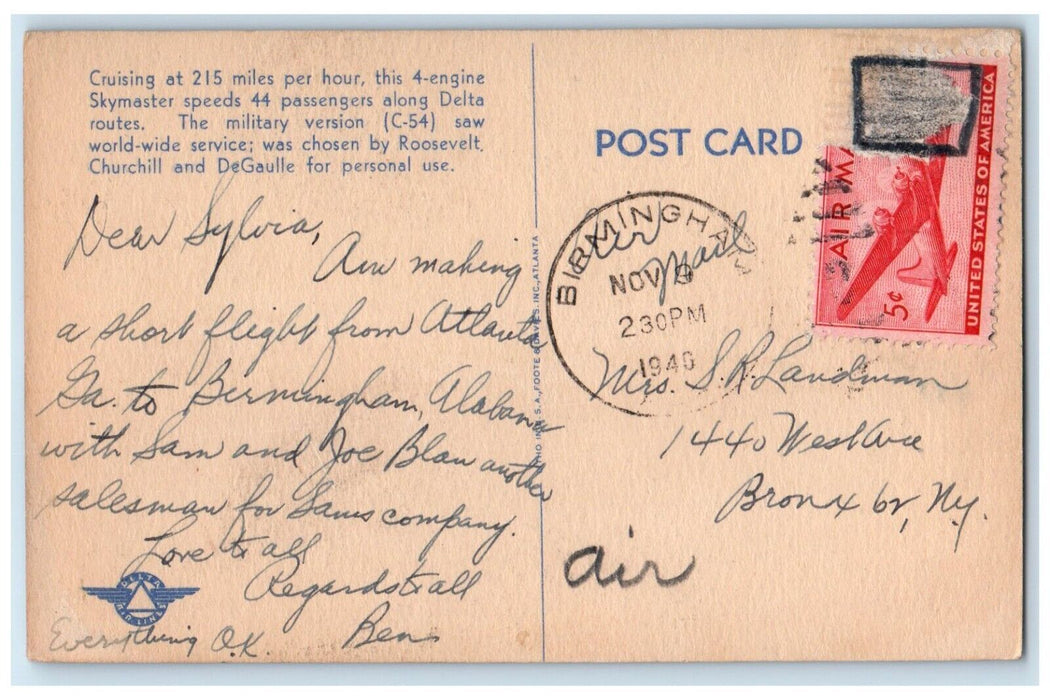 Cruising at 215 miles per hour, this 4-engine
Skymaster speeds 44 passengers along Delta
routes. The military version (C-54) saw
world-wide service; was chosen by Roosevelt,
Churchill and DeGaulle for personal use.
Dear Sylvia,
Am making
a short flight from Atlanta
Ga. to Bermingham, Alabama
with Sam and Joe Blau another
salesman for Sams company.
Love to all
Regards to all
Ben
Everything O.K.
DELTA
AIR LINES
LITHO IN U.S.A., FOOTE & DAVIES, INC., ATLANTA
POST CARD
AIR MA
5¢
UNITED STATES OF AMERICA
BIRMINGHAM
NOV 9
2 30 PM
1946
Air
Mail
Mrs. S R Landman
1440 West Ave
Bronx 62, N.Y.
air